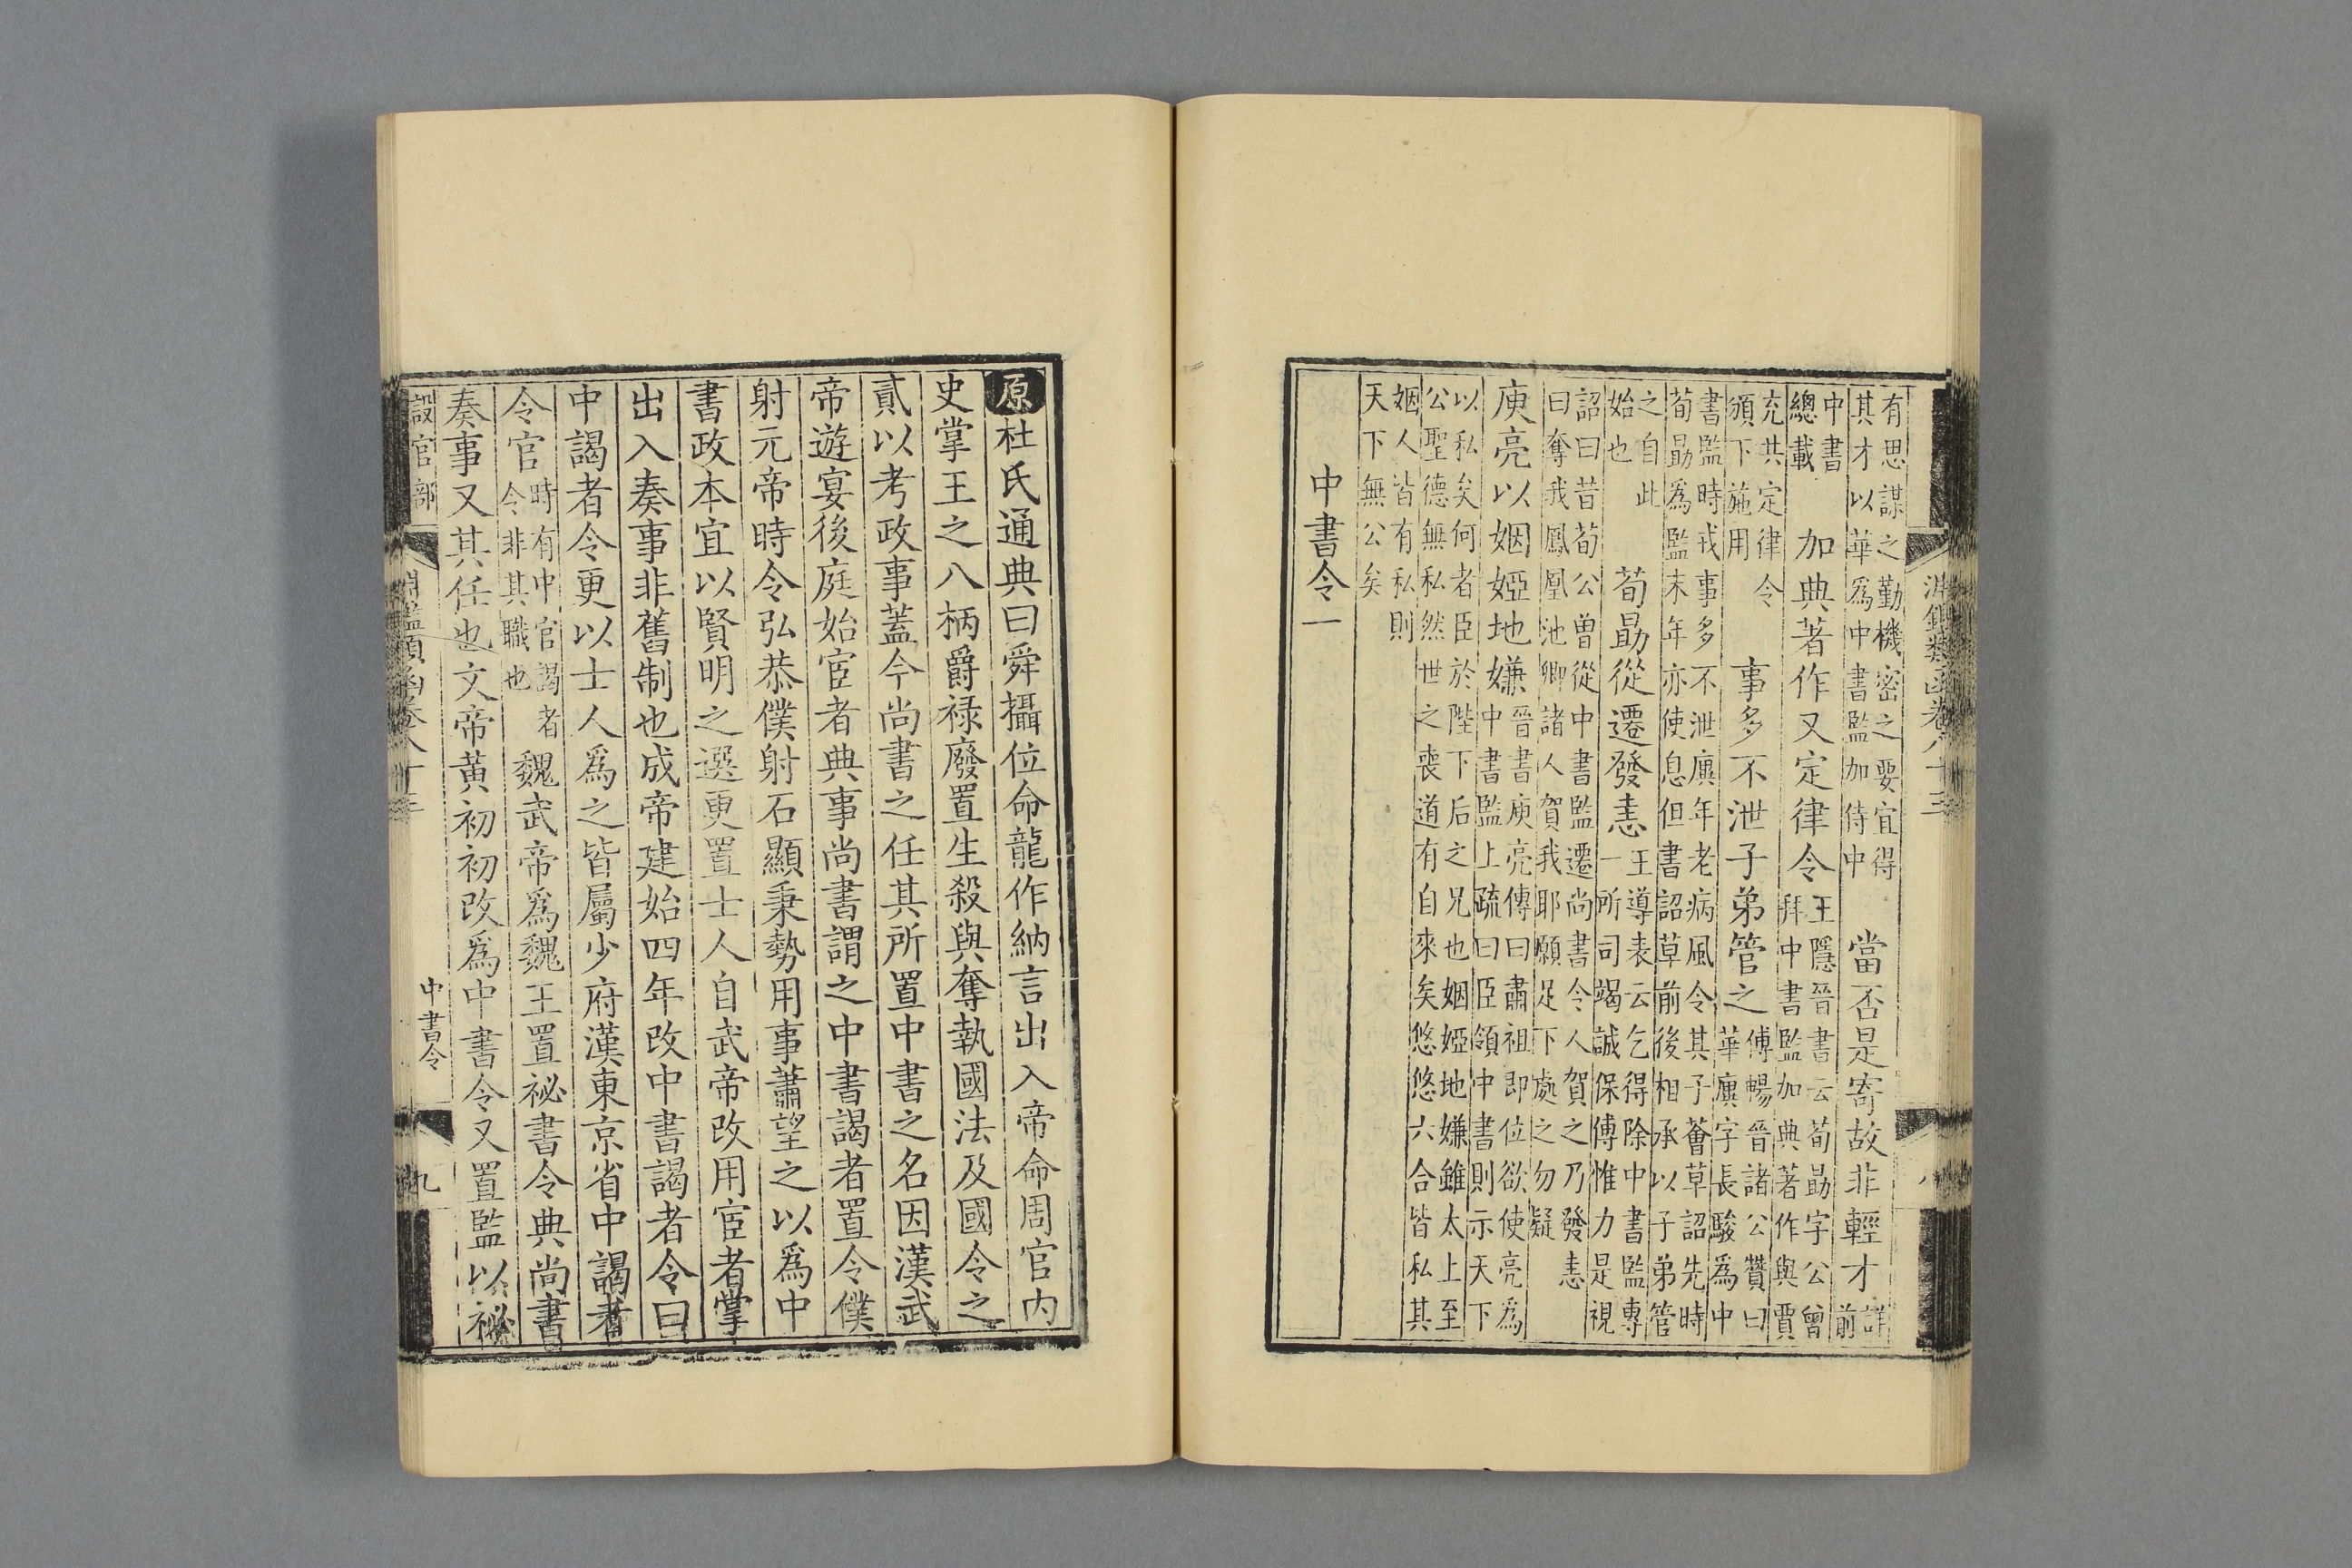 淵鑑類函卷八十三 八
有思謀之勤機密之要宜得
其才以華為中書監加侍中
當否是寄故非輕才
詳
前
中書
總載
加典著作又定律令
王隱晉書云荀勗字公曾
拜中書監加典著作與賈
充共定律令
頒下施用
事多不泄子弟管之
傅暢晉諸公贊曰
華廙字長駿為中
書監時戎事多不泄廙年老病風令其子薈草詔先時
荀勗為監末年亦使息但書詔草前後相承以子弟管
之自此
始也
荀勗從遷發恚
王導表云乞得除中書監專
一所司竭誠保傅惟力是視
詔曰昔荀公曾從中書監遷尚書令人賀之乃發恚
曰奪我鳳凰池卿諸人賀我耶願足下處之勿疑
庾亮以姻婭地嫌
晉書庾亮傳曰肅祖即位欲使亮為
中書監上疏曰臣領中書則示天下
以私矣何者臣於陛下后之兄也姻婭地嫌雖太上至
公聖德無私然世之喪道有自來矣悠悠六合皆私其
姻人皆有私則
天下無公矣
中書令一
原杜氏通典曰舜攝位命龍作納言出入帝命周官内
史掌王之八柄爵禄廢置生殺與奪執國法及國令之
貳以考政事蓋今尚書之任其所置中書之名因漢武
帝遊宴後庭始宦者典事尚書謂之中書謁者置令僕
射元帝時令弘恭僕射石顯秉勢用事蕭望之以爲中
書政本宜以賢明之選更置士人自武帝改用宦者掌
出入奏事非舊制也成帝建始四年改中書謁者令曰
中謁者令更以士人爲之皆屬少府漢東京省中謁者
令官
時有中官謁者
令非其職也
魏武帝爲魏王置祕書令典尚書
奏事又其任也文帝黄初初改爲中書令又置監以祕
設官部 淵鑑類函卷八十三 中書令 九